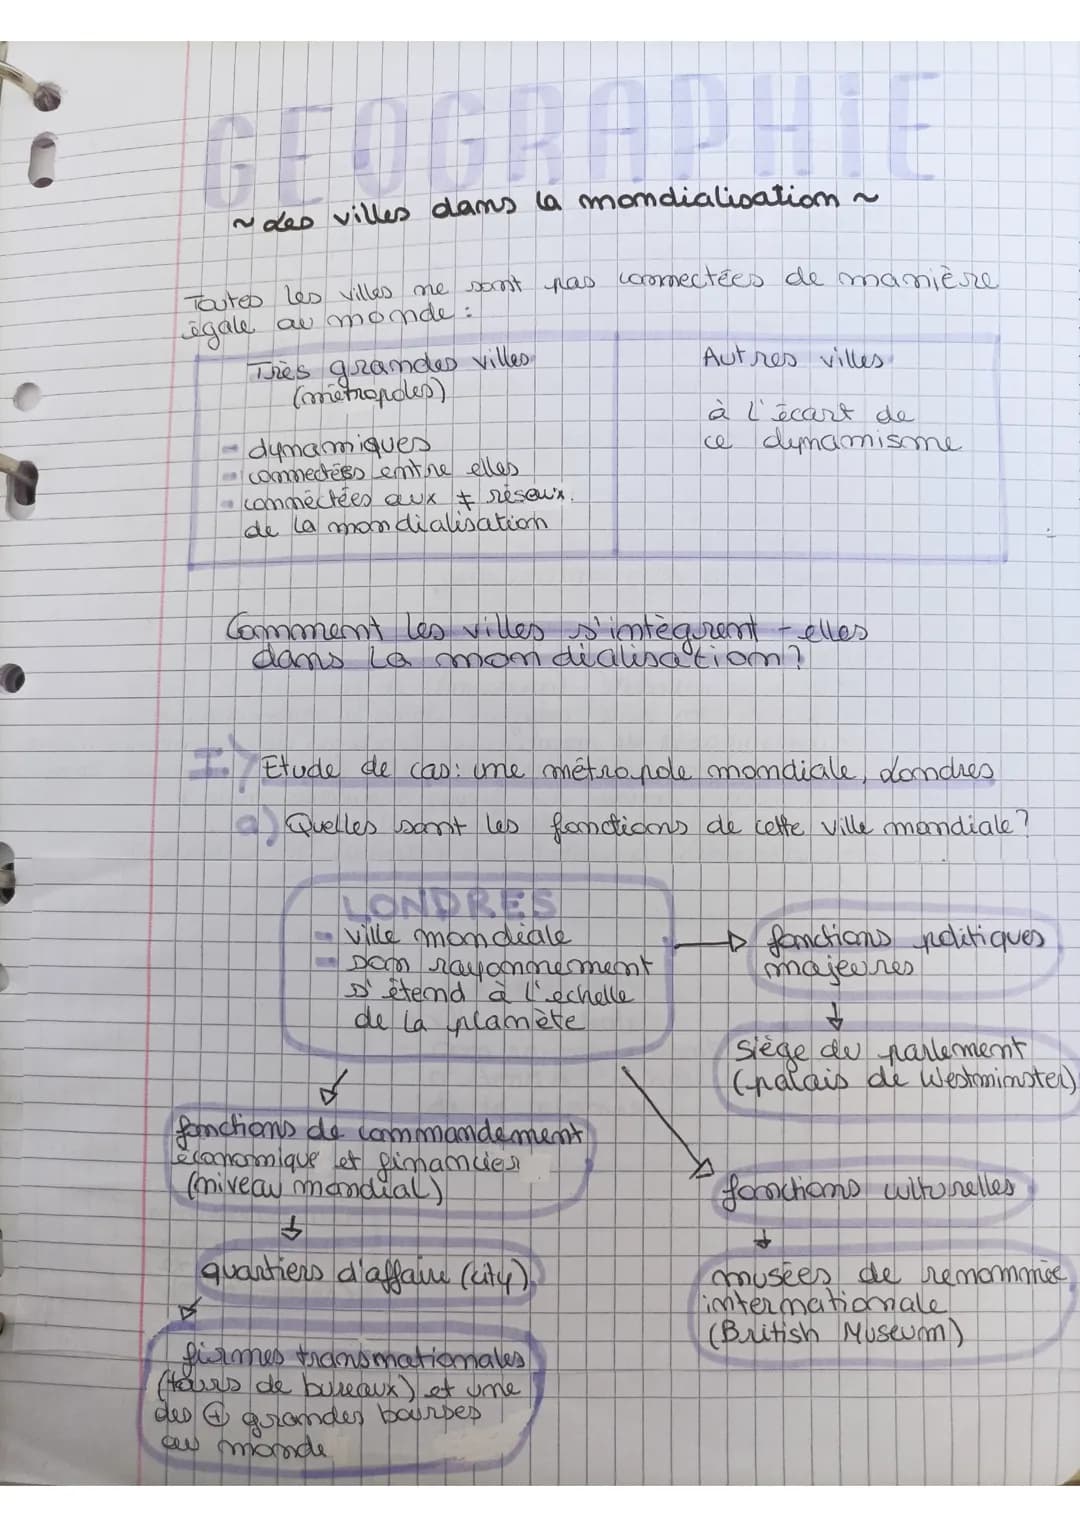 GEOGRAPHIE
~ Les villes dans la mondialisation ~
Toutes les villes ne sont pas connectées de manière
égale au monde :
Très grandes villes
(métropoles)
- dynamiques
- connectées entre elles
- connectées aux ≠ réseux
de la mondialisation
Autres villes
à l'écart de
ce dynamisme
Comment les villes s'intègrent-elles
dans la mondialisation ?
I) Etude de cas : une métropole mondiale, Londres
a) Quelles sont les fonctions de cette ville mondiale ?
LONDRES
- ville mondiale
- son rayonnement
s'étend à l'echelle
de la planète
fonctions politiques
majeures
siège du parlement
(palais de Westminster)
fonctions de commandement
économique et financier
(niveau mondial)
quartiers d'affaire (city)
firmes transnationales
(tours de bureaux) et une
des + grandes bourses
au monde
fonctions culturelles
musées de renommée
internationale
(British Museum)